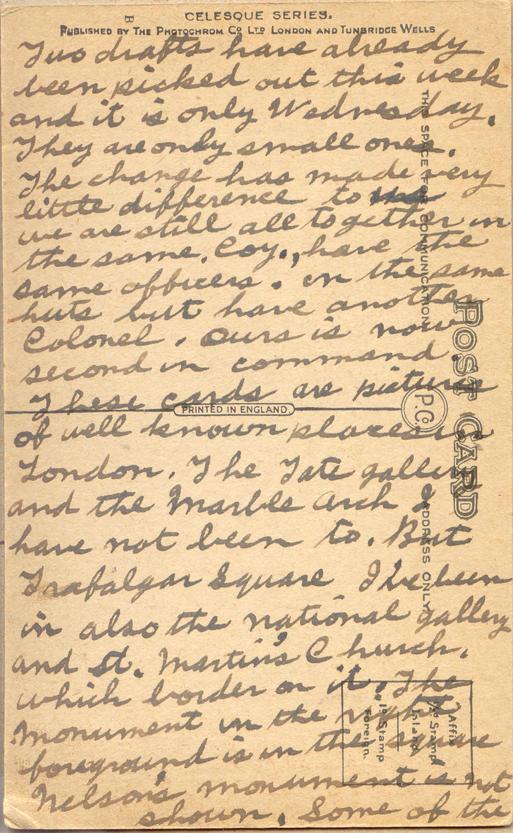 B
CELESQUE SERIES.
PUBLISHED BY THE PHOTOCHROM Co LTD LONDON AND TUNBRIDGE WELLS
Two drafts have already
been picked out this week
and it is only Wednesday.
They are only small ones.
The change has made very
little difference to us
we are still all together in
the same. Coy., have the
same officers. in the same
huts but have another
Colonel. Ours is now
second in command.
These cards are pictures
PRINTED IN ENGLAND.
of well known places in
London. The Tate gallery
and the Marble Arch I
have not been to. But
Trafalgar Square I've been
in also the national gallery
and St. Martin's Church.
which border on it. The
monument in the right
foreground is in the square
Nelson's monument is not
shown. Some of the
THIS SPACE FOR COMMUNICATION
POST CARD
P.C.
ADDRESS ONLY
Affix
½D Stamp
Inland
1D Stamp
Foreign.